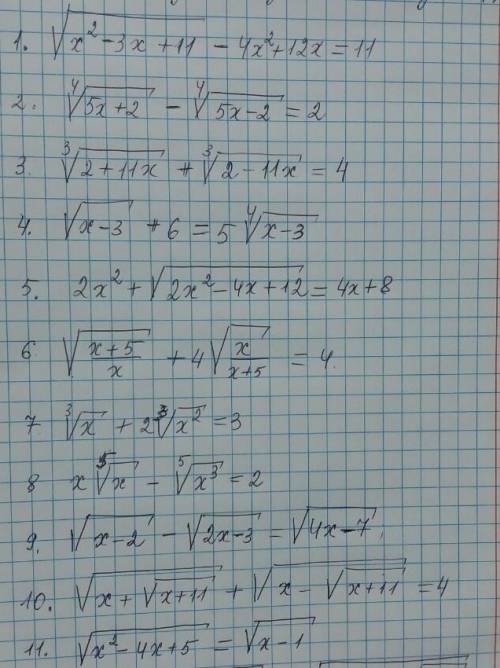 1. √(x²-3x+11) - 4x²+12x = 11
2. ⁴√(5x+2) - ⁴√(5x-2) = 2
3. ³√(2+11x) + ³√(2-11x) = 4
4. √(x-3) + 6 = 5 ⁴√(x-3)
5. 2x² + √(2x²-4x+12) = 4x+8
6 √((x+5)/x) + 4√(x/(x+5)) = 4.
7 ³√x + 2 ³√x² = 3
8 x ⁵√x - ⁵√x³ = 2
9. √(x-2) - √(2x-3) = √(4x-7)
10. √(x+√(x+11)) + √(x-√(x+11)) = 4
11. √(x²-4x+5) = √(x-1)